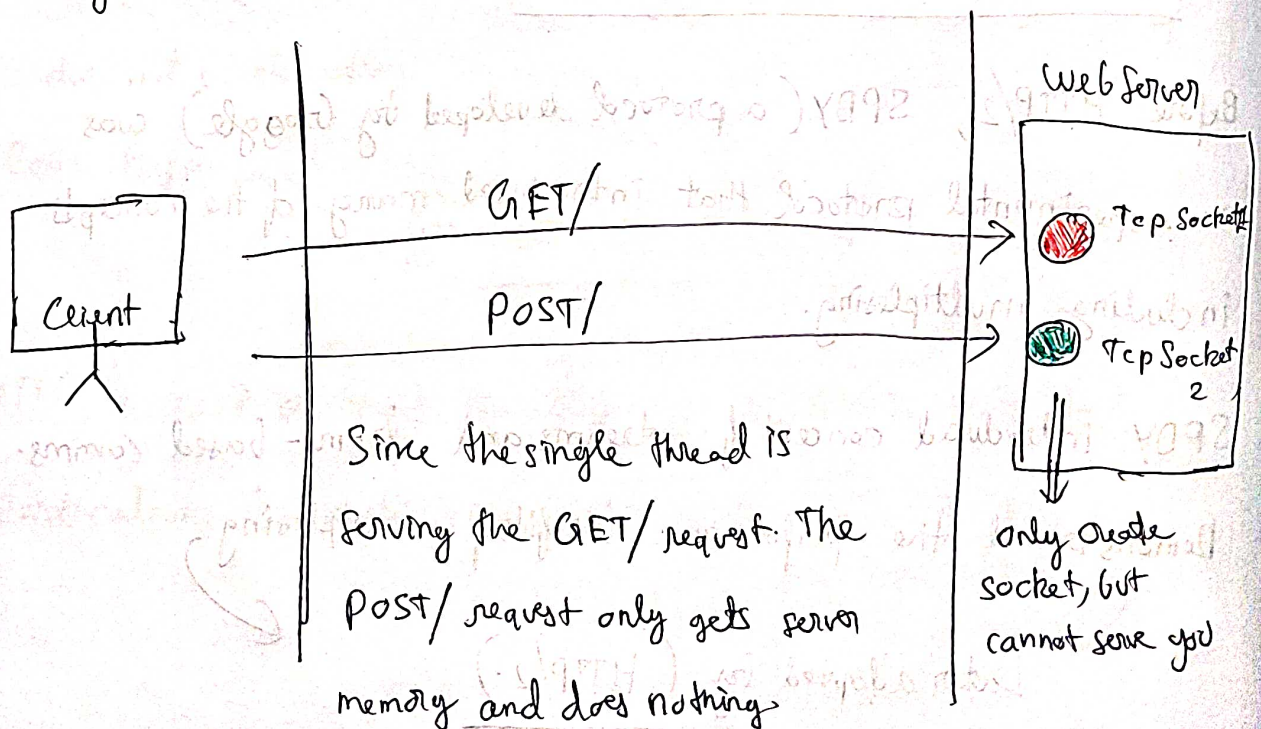 Web Server
GET/
Tcp Socket1
Client
POST/
Tcp Socket
2
Since the single thread is
serving the GET/ request. The
POST/ request only gets server
memory and does nothing.
only create
socket, but
cannot serve you